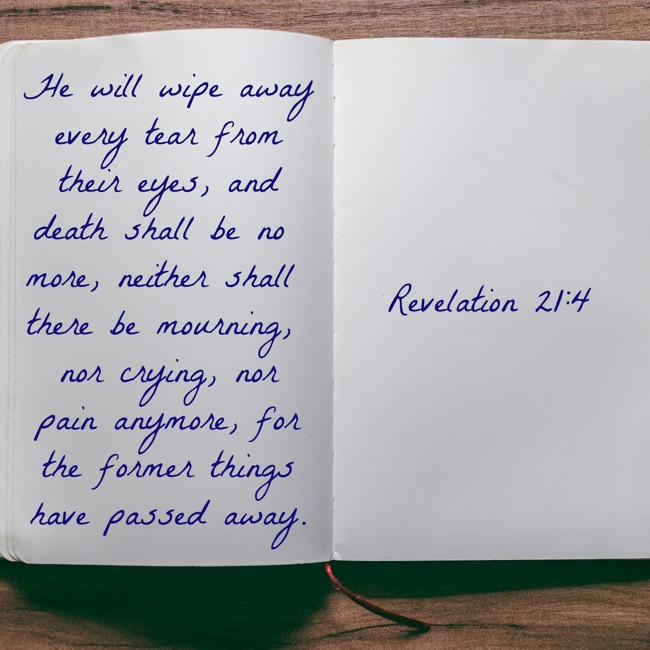 He will wipe away
every tear from
their eyes, and
death shall be no
more, neither shall
there be mourning,
nor crying, nor
pain anymore, for
the former things
have passed away.
Revelation 21:4